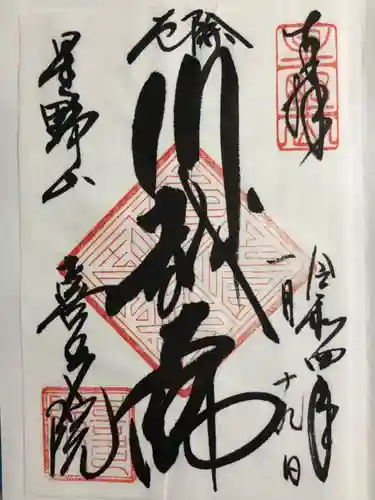 奉拝
令和四年
一月
十九日
厄除
川越大師
星野山
喜多院